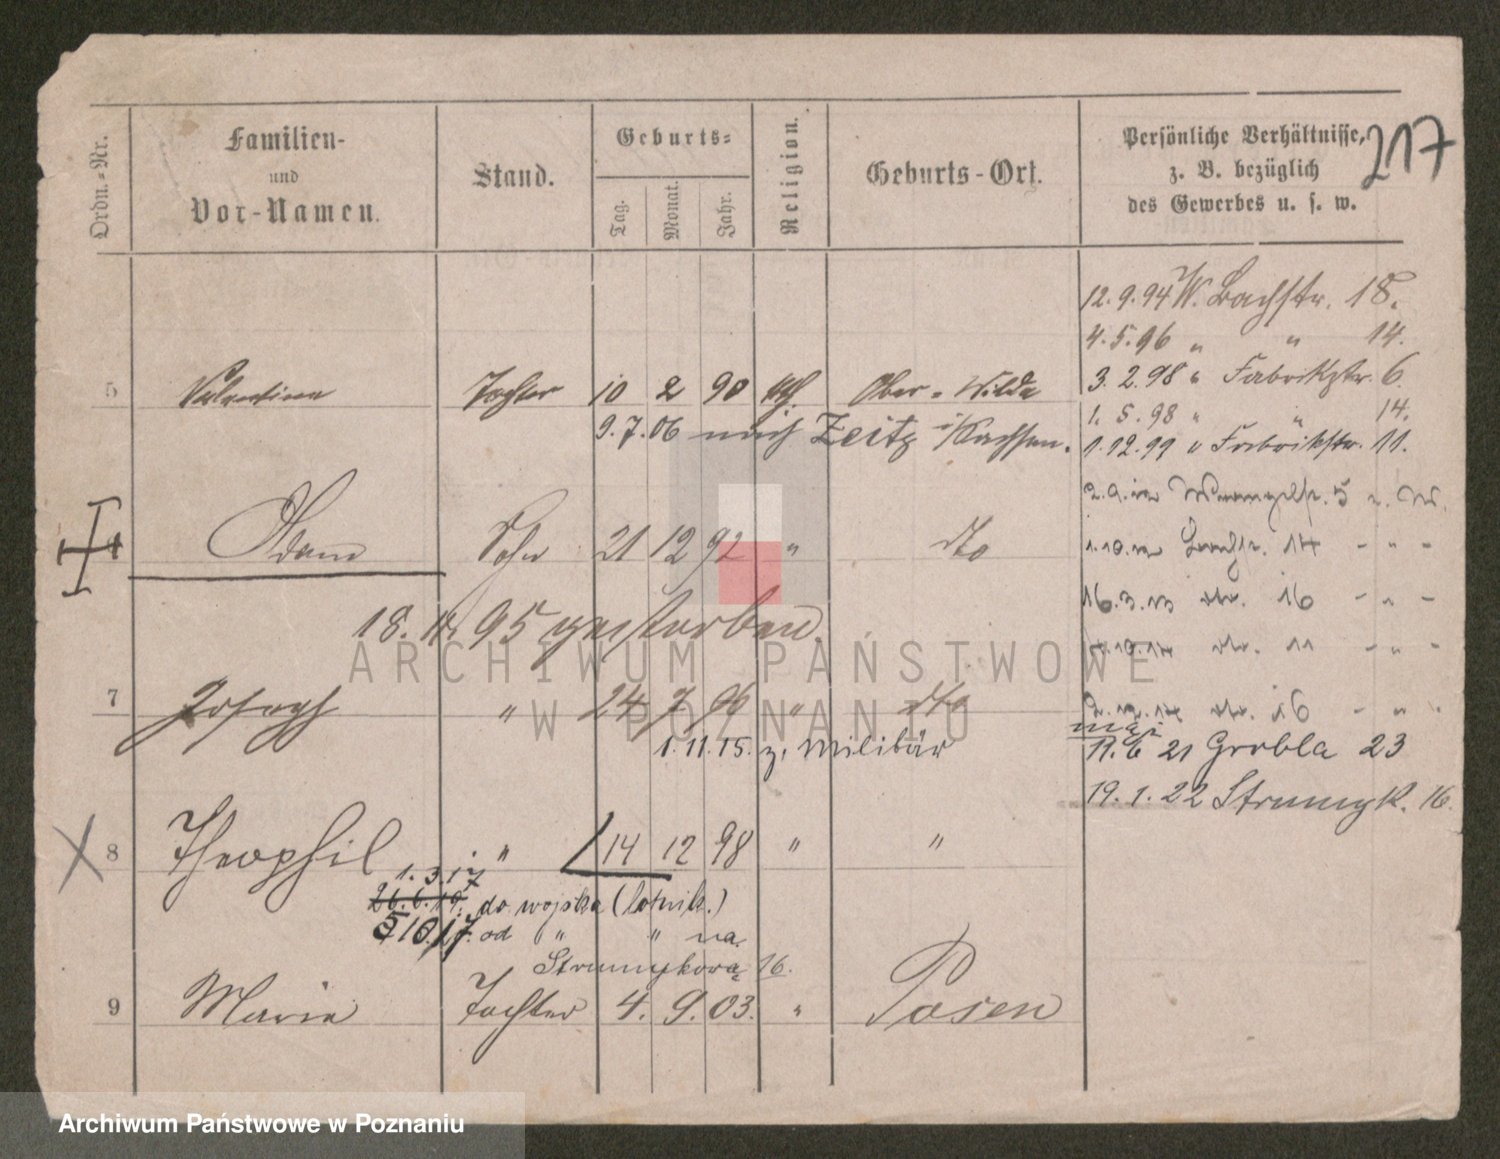 217
Ordn.-Nr.
Familien-
und
Vor-Namen.
Stand.
Geburts-
Tag.
Monat.
Jahr.
Religion.
Geburts-Ort.
Persönliche Verhältnisse,
z. B. bezüglich
des Gewerbes u. s. w.
12. 9. 94 W. Bachstr. 18.
4. 5. 96 " " 14.
3. 2. 98 " Fabrikstr. 6.
1. 5. 98 " " 14.
1. 12. 99 " Fabrikstr. 11.
5 Valentina Tochter 10 2 90 kth Ober-Wilda
9. 7. 06 nach Zeitz i/Sachsen.
Adam Sohn 21 12 92 " dto
18. 95 gestorben.
7 Joseph " 24 7 96 " dto
1. 11. 15. z. Militär
16. 3. 13 dto. 16 - " -
dto. 11 - " -
dto. 16 - " -
11. 6 21 Grobla 23
19. 1. 22 Strumyk. 16.
8 Theophil " 14 12 98 " "
1. 3. 17
26. 6. 19. do wojska (lotnik.)
5 10. 17. od " " na
Strumykową 16.
9 Maria Tochter 4. 9. 03. " Posen
ARCHIWUM PAŃSTWOWE
W POZNANIU
Archiwum Państwowe w Poznaniu